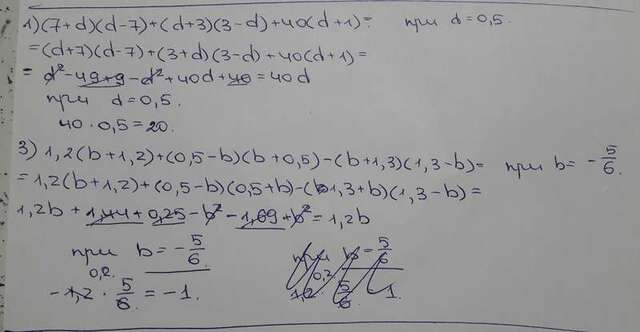 1) (7+d)(d-7)+(d+3)(3-d)+40(d+1)= при d=0,5.
=(d+7)(d-7)+(3+d)(3-d)+40(d+1)=
= d²-49+9-d²+40d+40=40d
при d=0,5.
40·0,5=20.
3) 1,2(b+1,2)+(0,5-b)(b+0,5)-(b+1,3)(1,3-b)= при b= -5/6.
=1,2(b+1,2)+(0,5-b)(0,5+b)-(1,3+b)(1,3-b)=
1,2b+1,44+0,25-b²-1,69+b²=1,2b
при b=-5/6.
0,2
-1,2·5/6=-1.